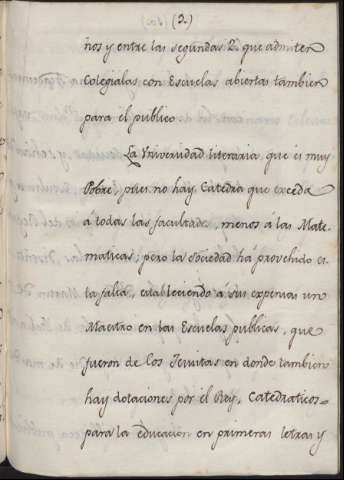 (3.)
ños y entre las segundas 2. que admiten
Colegialas con Escuelas abiertas tambien
para el publico.
La Vniversidad literaria, que es muy
Pobre, pues no hay Catedra que exceda
à todas las facultade, menos à las Mate-
maticas; pero la Sociedad há provehido es-
ta falta, estableciendo à sus expensas un
Maestro en las Escuelas publicas, que
fueron de los Jesuitas en donde tambien
hay dotaciones por el Rey, Catedraticos
para la educacion en primeras letras y